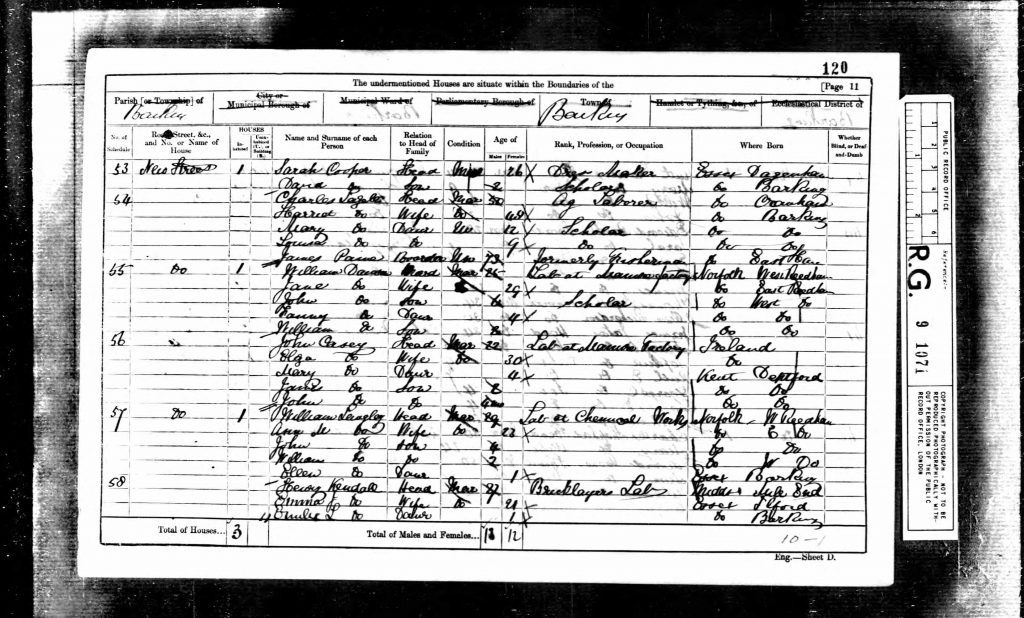 120
The undermentioned Houses are situate within the Boundaries of the
[Page 11
Parish [or Township] of
City or Municipal Borough of
Municipal Ward of
Parliamentary Borough of
Town of
Hamlet or Tything, &c., of
Ecclesiastical District of
Barking Barking
No. of Schedule
Road, Street, &c., and No. or Name of House
HOUSES
Name and Surname of each Person
Relation to Head of Family
Condition
Age of
Males Females
Rank, Profession, or Occupation
Where Born
Whether Blind, or Deaf-and-Dumb
53 New Street 1 Sarah Cooper Head 26 Maker Essex Dagenham
David Do Son 2 Scholar Do Barking
54 Charles Head Mar 50 Ag Laborer Do
Harriet Do Wife Do 48 Do Barking
Mary Do Daur Un 12 Scholar Do Do
Louisa Do Do 9 Do Do Do
James Boarder Un 73 formerly Fisherman East Ham
55 Do 1 William Head Mar Lab at Manure factory Norfolk West
Jane Do Wife 29 Do East
John Do Son Scholar Do West Do
Fanny Do Daur 4 Do Do
William Do Son 2 Do Do
56 John Casey Head Mar 32 Lab at Manure Factory Ireland
Do Wife Do 30 Do
Mary Do Daur 4 Kent Deptford
Do Son 2 Do Do
John Do Do Do Do
57 Do 1 William Langley Head Mar 29 Lab at Chemical Works Norfolk W
Ann M Do Wife Do 23 Do E Do
John Do Son 4 Do Do
William Do Do 2 Do W Do
Ellen Do Daur 1 Essex Barking
58 Henry Kendall Head Mar 27 Bricklayers Lab Middx Mile End
Emma Do Wife Do 21 Essex Ilford
Emily L Do Daur 1 Do Barking
Total of Houses... 3
Total of Males and Females... 13 12
10-1
Eng.—Sheet D.
PUBLIC RECORD OFFICE
Reference:-
R.G. 9 1071
COPYRIGHT PHOTOGRAPH - NOT TO BE REPRODUCED PHOTOGRAPHICALLY WITHOUT PERMISSION OF THE PUBLIC RECORD OFFICE, LONDON